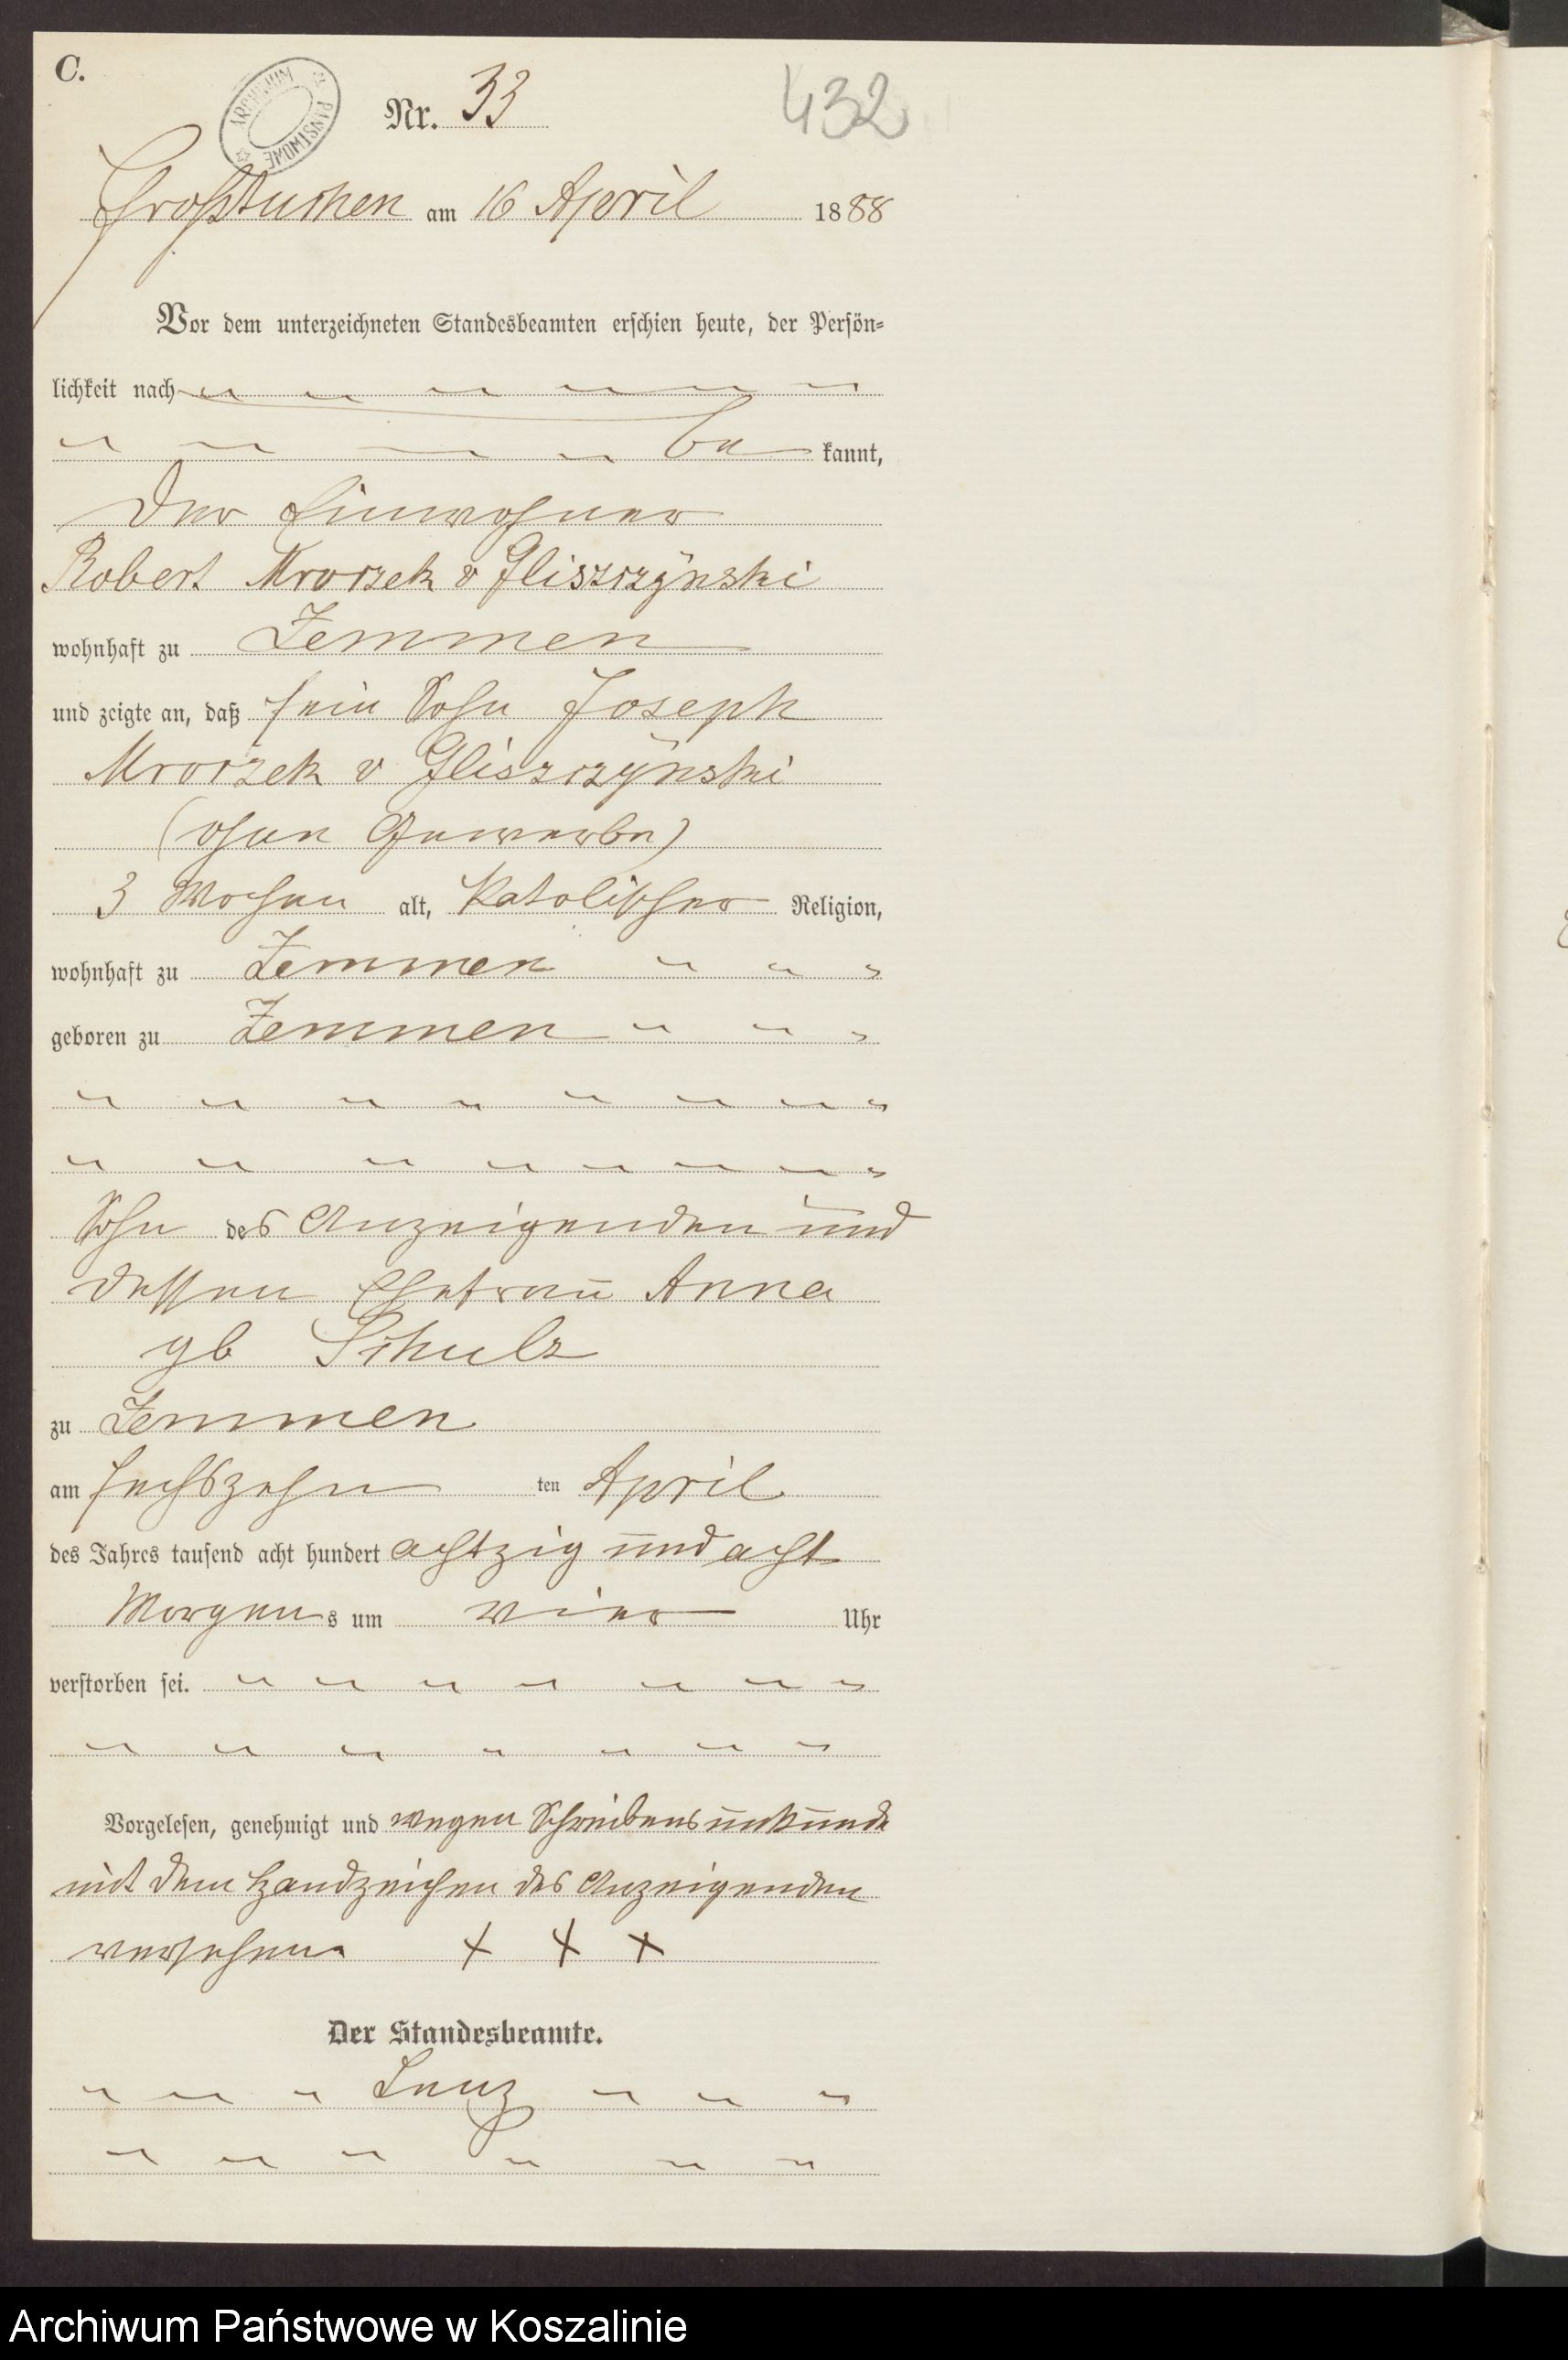 C.
ARCHIWUM PAŃSTWOWE
Nr. 33
432
Großtuchen am 16 April 1888
Vor dem unterzeichneten Standesbeamten erschien heute, der Persön-
lichkeit nach
be kannt,
der Einwohner
Robert Mroczek v Gliszczÿnski
wohnhaft zu Zemmen
und zeigte an, daß sein Sohn Joseph
Mroczek v Gliszczÿnski
(ohne Gewerbe)
3 Wochen alt, Katolischer Religion,
wohnhaft zu Zemmen
geboren zu Zemmen
Sohn des Anzeigenden und
dessen Ehefrau Anna
gb Schulz
zu Zemmen
am sechszehn ten April
des Jahres tausend acht hundert achtzig und acht
Morgens um vier Uhr
verstorben sei.
Vorgelesen, genehmigt und wegen Schreibensunkunde
mit dem Handzeichen des Anzeigenden
versehen. + + +
Der Standesbeamte.
Lenz
Archiwum Państwowe w Koszalinie